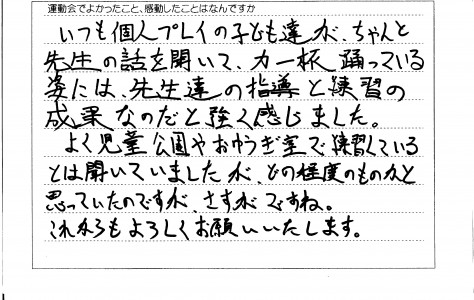 運動会でよかったこと、感動したことはなんですか
いつも個人プレイの子ども達が、ちゃんと
先生の話を聞いて、力一杯踊っている
姿には、先生達の指導と練習の
成果なのだと強く感じました。
よく児童公園やおゆうぎ室で練習している
とは聞いていましたが、どの程度のものかと
思っていたのですが、さすがですね。
これからもよろしくお願いいたします。